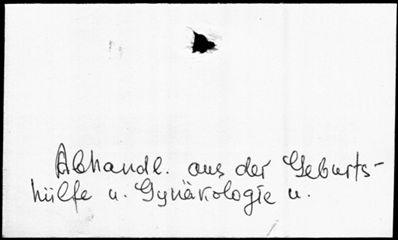 Abhandl. aus der Geburts-
hülfe u. Gynäkologie u.